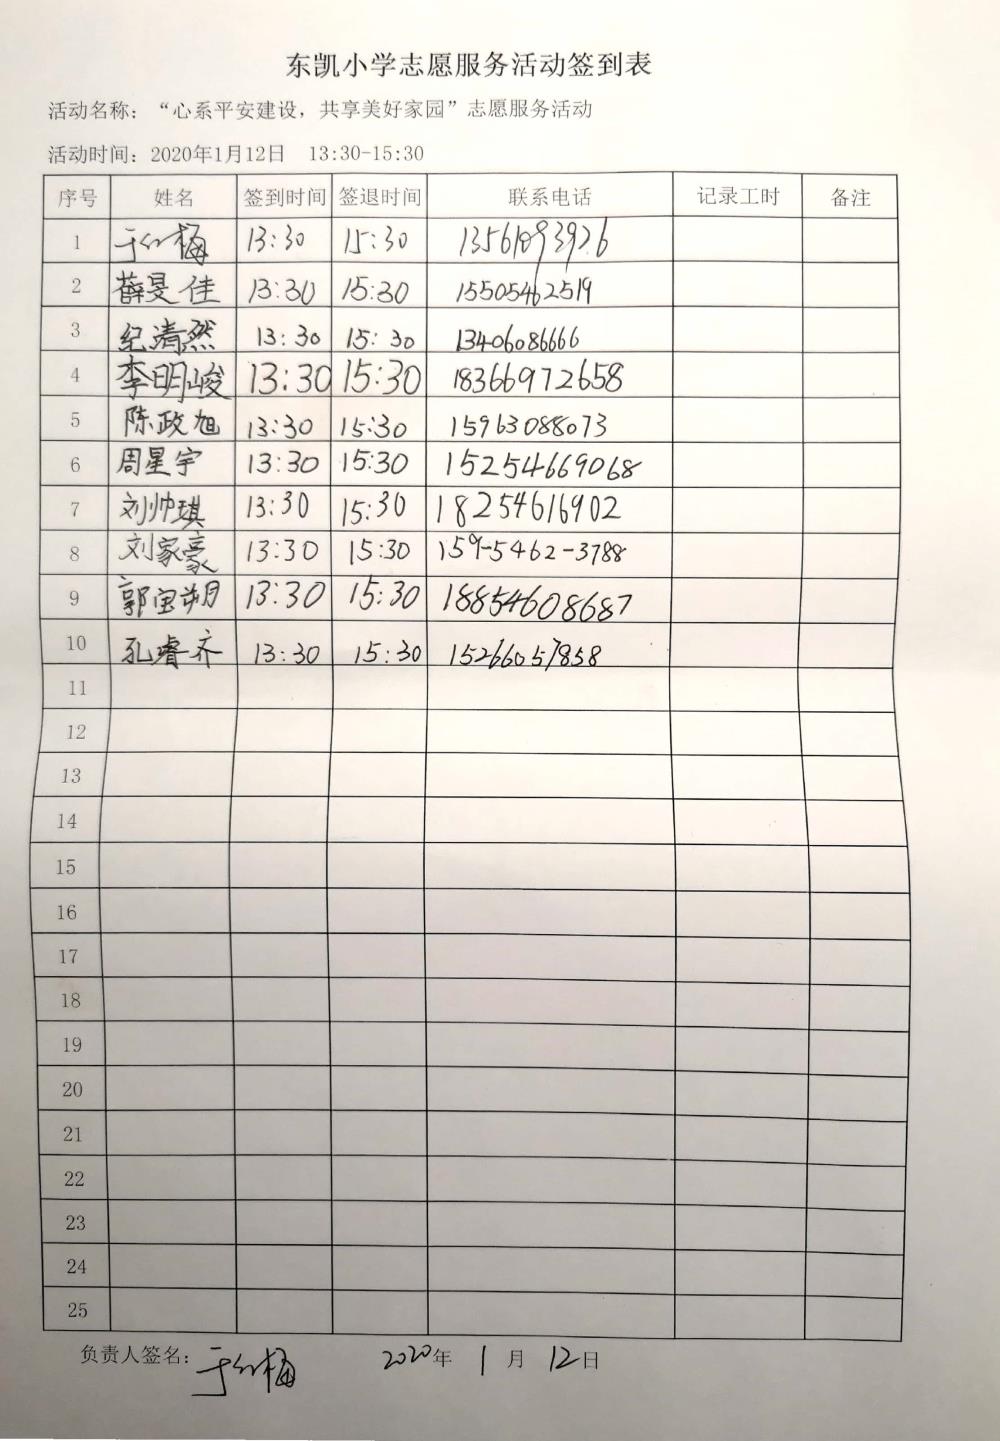 东凯小学志愿服务活动签到表
活动名称：“心系平安建设，共享美好家园”志愿服务活动
活动时间：2020年1月12日 13:30-15:30
序号 姓名 签到时间 签退时间 联系电话 记录工时 备注
1 于红梅 13:30 15:30 13561093926
2 薛旻佳 13:30 15:30 15505462519
3 纪清然 13:30 15:30 13406086666
4 李明峻 13:30 15:30 18366972658
5 陈政旭 13:30 15:30 15963088073
6 周星宇 13:30 15:30 15254669068
7 刘帅琪 13:30 15:30 18254616902
8 刘家豪 13:30 15:30 159-5462-3788
9 郭宝朔 13:30 15:30 18854608687
10 孔睿齐 13:30 15:30 15266057858
11
12
13
14
15
16
17
18
19
20
21
22
23
24
25
负责人签名：于红梅 2020年1月12日